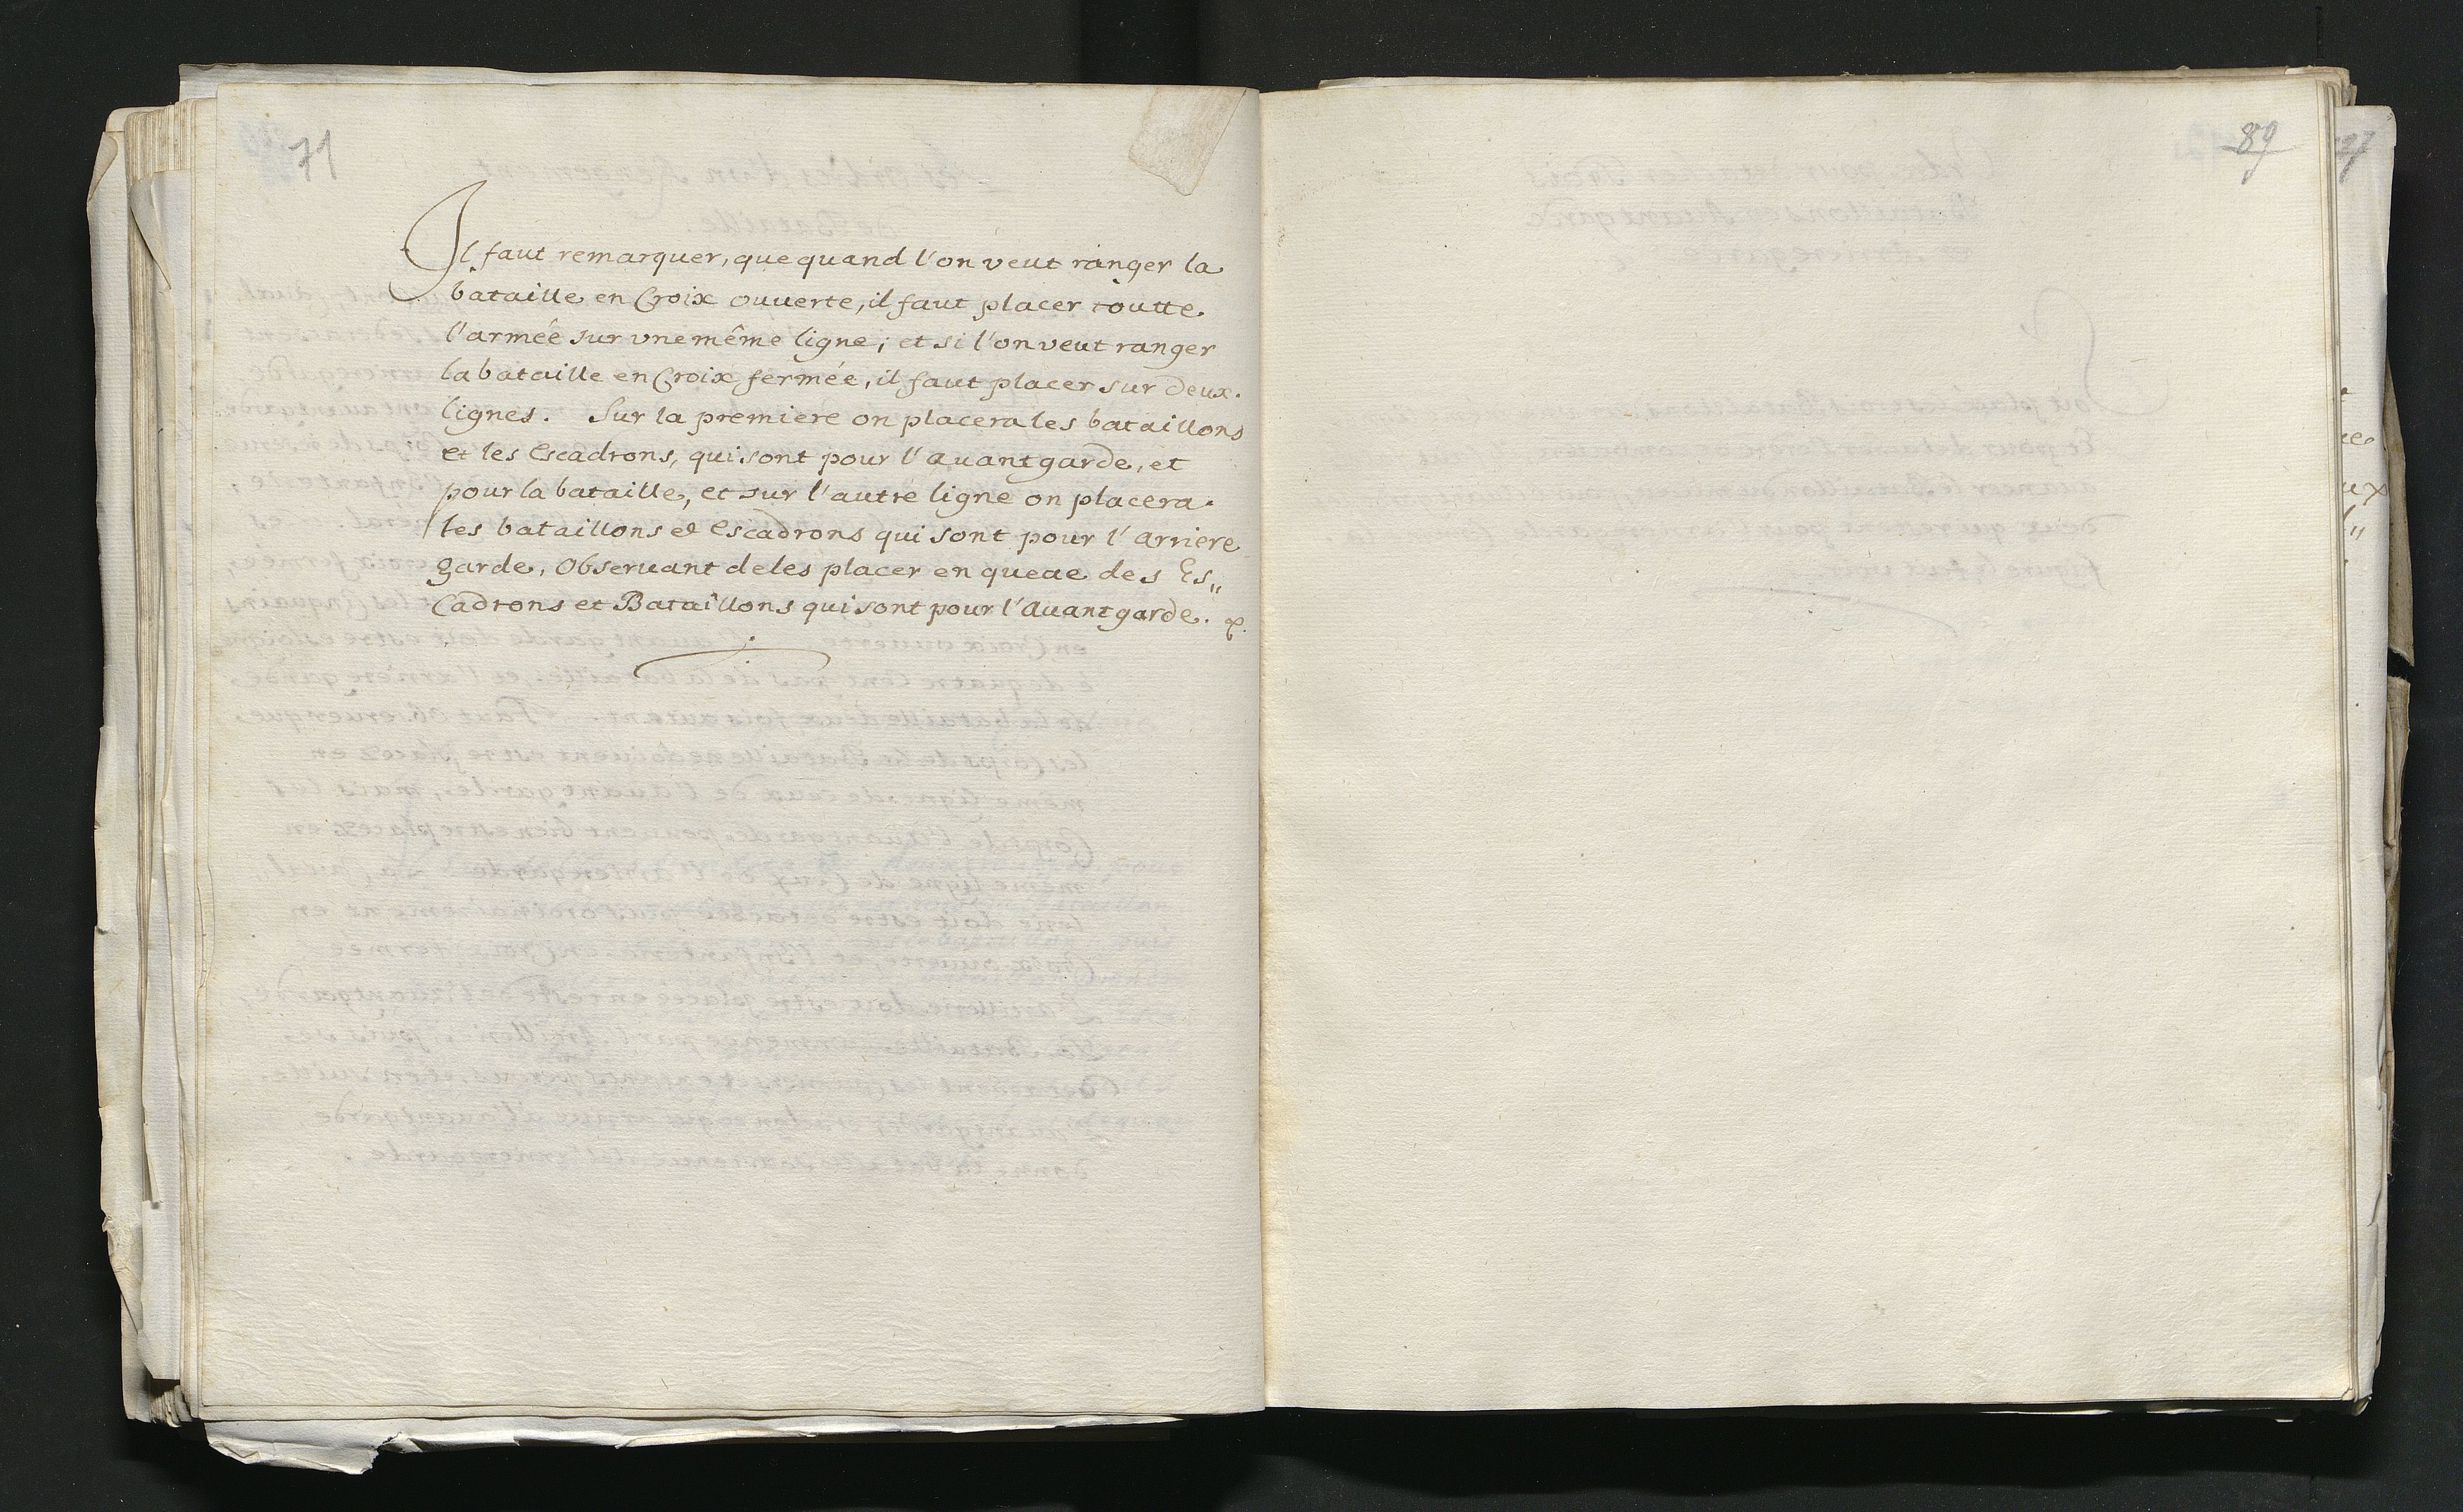 71
Il faut remarquer, que quand l'on veut ranger la
bataille en Croix ouuerte, il faut placer toutte
l'armée sur vne même ligne; et si l'on veut ranger
la bataille en Croix fermée, il faut placer sur deux
lignes. Sur la premiere on placera les bataillons
et les Escadrons, qui sont pour l'auantgarde, et
pour la bataille, et sur l'autre ligne on placera
les bataillons et Escadrons qui sont pour l'arriere
garde, Obseruant de les placer en queue des Es„
Cadrons et Bataillons qui sont pour l'Auantgarde.
89